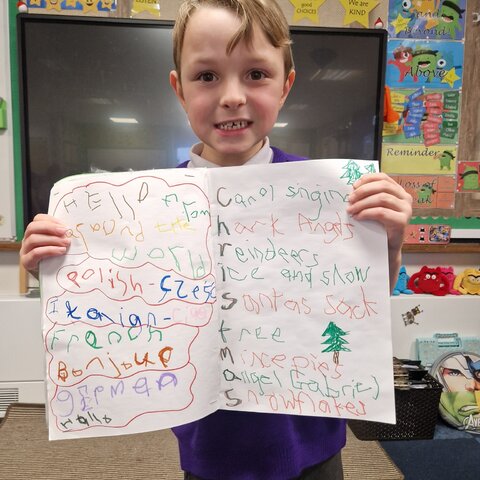 good CHOICES
We are KIND
HELLO from
around the
world
Polish - Czesc
Italian - Ciao
French
Bonjour
German
Hallo
Carol singing
hark Angels
reindeers
ice and snow
Santas sack
tree
mince pies
angel (Gabriel)
Snowflakes
Above
Reminder
Loss of